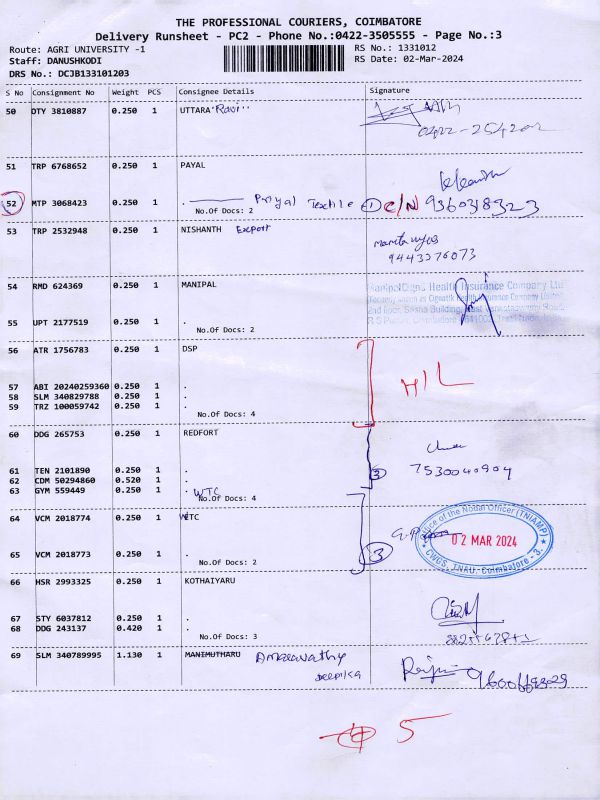 THE PROFESSIONAL COURIERS, COIMBATORE
Delivery Runsheet - PC2 - Phone No.:0422-3505555 - Page No.:3
Route: AGRI UNIVERSITY -1 RS No.: 1331012
Staff: DANUSHKODI RS Date: 02-Mar-2024
DRS No.: DCJB133101203
S No Consignment No Weight PCS Consignee Details Signature
50 DTY 3810887 0.250 1 UTTARA "Ravi"
51 TRP 6768652 0.250 1 PAYAL
52 MTP 3068423 0.250 1 . Priyal Textile 1 C/N 936038323
No.Of Docs: 2
53 TRP 2532948 0.250 1 NISHANTH Export
9443376073
54 RMD 624369 0.250 1 MANIPAL
ManipalCigna Health Insurance Company Ltd
55 UPT 2177519 0.250 1 .
No.Of Docs: 2
56 ATR 1756783 0.250 1 DSP
H/L
57 ABI 20240259360 0.250 1 .
58 SLM 340829788 0.250 1 .
59 TRZ 100059742 0.250 1 .
No.Of Docs: 4
60 DDG 265753 0.250 1 REDFORT
61 TEN 2101890 0.250 1 . 3 7530040904
62 CDM 50294860 0.520 1 .
63 GYM 559449 0.250 1 . WTC
No.Of Docs: 4
64 VCM 2018774 0.250 1 WTC
Office of the Nodal Officer (TNIAMP)
02 MAR 2024
CWGS, TNAU, Coimbatore - 3.
65 VCM 2018773 0.250 1 . 3
No.Of Docs: 2
66 HSR 2993325 0.250 1 KOTHAIYARU
67 STY 6037812 0.250 1 .
68 DDG 243137 0.420 1 .
No.Of Docs: 3
69 SLM 340789995 1.130 1 MANIMUTHARU Amaravathy
Deepika
5